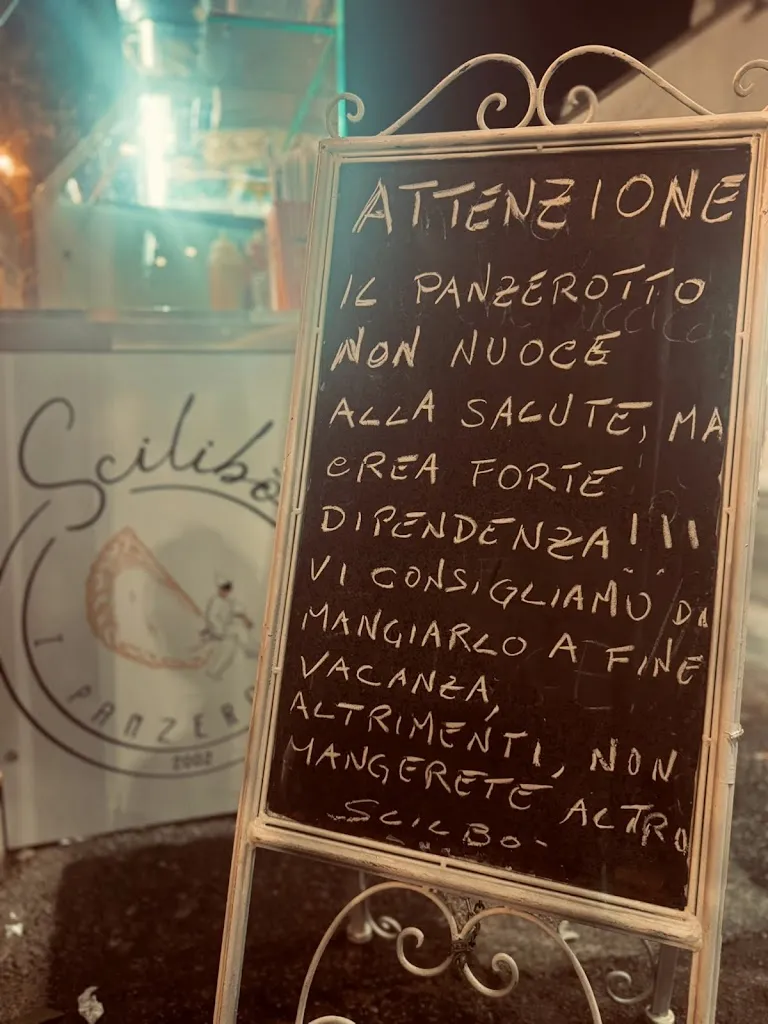 ATTENZIONE
IL PANZEROTTO
NON NUOCE
ALLA SALUTE, MA
CREA FORTE
DIPENDENZA!!!
VI CONSIGLIAMO DI
MANGIARLO A FINE
VACANZA,
ALTRIMENTI, NON
MANGERETE ALTRO
SCILBO-
Scilibò
I PANZERO
2002